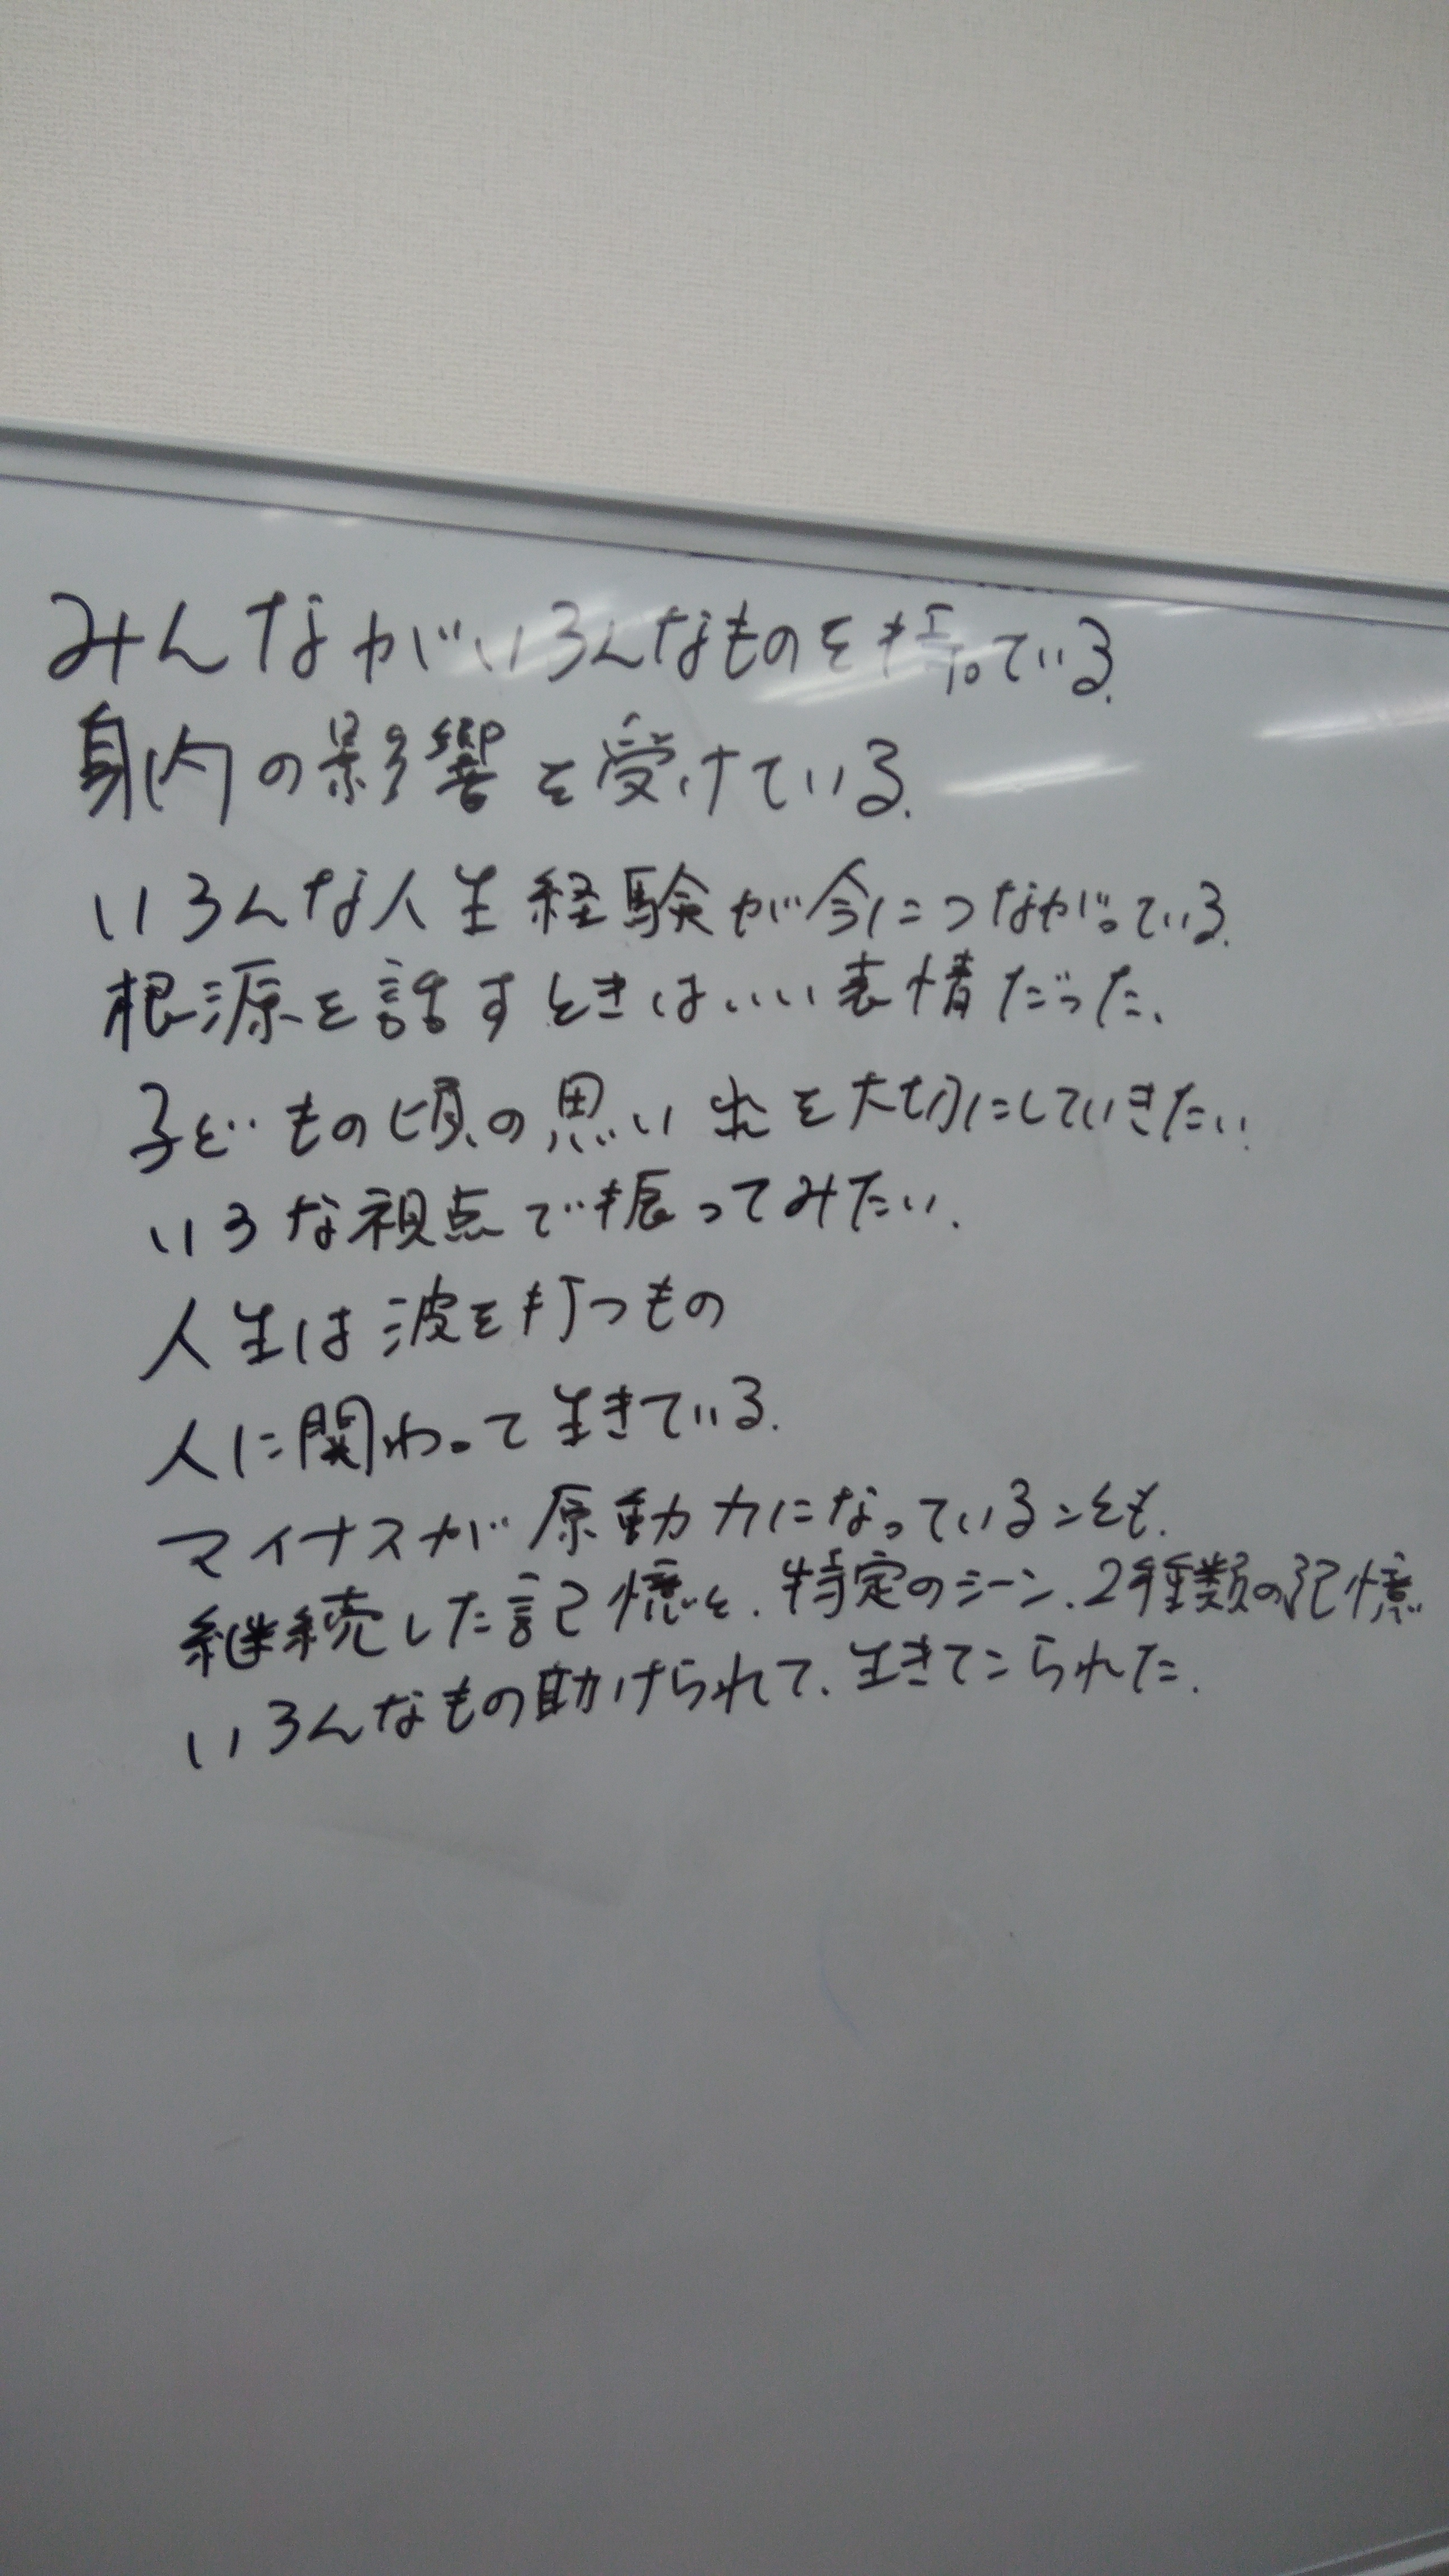 みんながいろんなものを持っている.
身内の影響を受けている.
いろんな人生経験が今につながっている.
根源を話すときはいい表情だった、
子どもの頃の思い出を大切にしていきたい.
いろな視点で振ってみたい.
人生は波を打つもの
人に関わって生きている.
マイナスが原動力になっていることも.
継続した記憶と.特定のシーン.2種類の記憶
いろんなもの助けられて.生きてこられた.